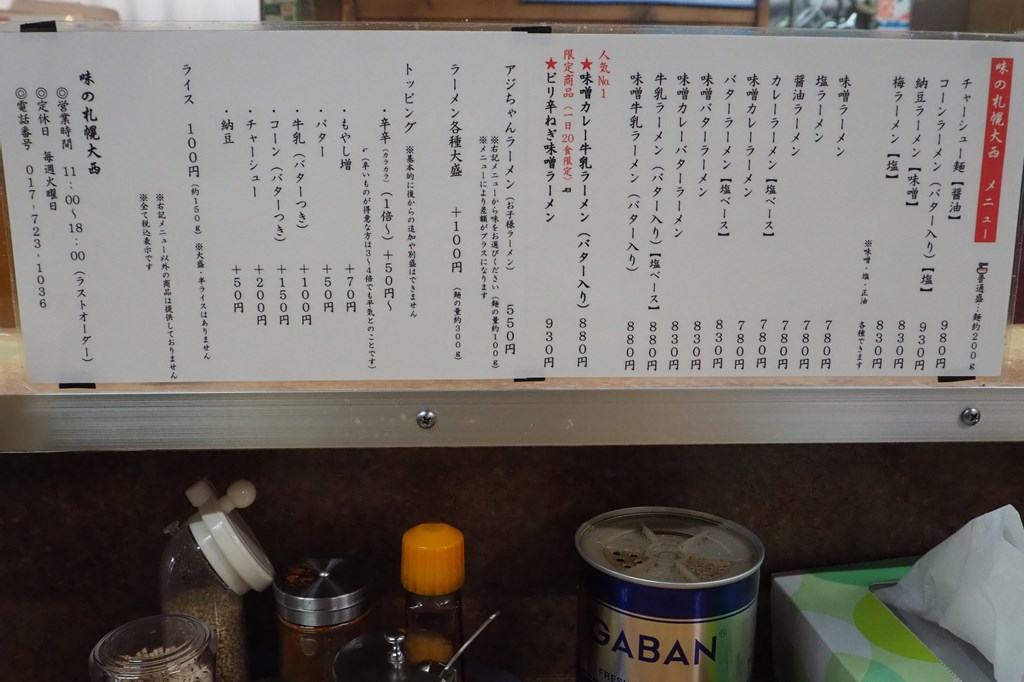 味の札幌大西 メニュー
普通盛:麺約200g
チャーシュー麺【醤油】 980円
コーンラーメン(バター入り)【塩】 930円
納豆ラーメン【味噌】 830円
梅ラーメン【塩】 830円
※味噌・塩・正油 各種できます
味噌ラーメン 780円
塩ラーメン 780円
醤油ラーメン 780円
カレーラーメン【塩ベース】 780円
味噌カレーラーメン 780円
バターラーメン【塩ベース】 830円
味噌バターラーメン 830円
味噌カレーバターラーメン 830円
牛乳ラーメン(バター入り)【塩ベース】 880円
味噌牛乳ラーメン(バター入り) 880円
人気No.1
★味噌カレー牛乳ラーメン(バター入り) 880円
限定商品(一日20食限定)
★ピリ辛ねぎ味噌ラーメン 930円
アジちゃんラーメン(お子様ラーメン) 550円
※右記メニューから味をお選びください(麺の量約100g)
※メニューにより差額がプラスになります
ラーメン各種大盛 +100円(麺の量約300g)
トッピング ※基本的に後からの追加や別盛はできません
・辛辛(カラカラ)(1倍~)+50円~
(辛いものが得意な方は3~4倍でも平気とのことです)
・もやし増 +70円
・バター +50円
・牛乳(バターつき) +100円
・コーン(バターつき) +150円
・チャーシュー +200円
・納豆 +50円
ライス 100円(約150g)※大盛・半ライスはありません
※右記メニュー以外の商品は提供しておりません
※全て税込表示です
味の札幌大西
◎営業時間 11:00~18:00(ラストオーダー)
◎定休日 毎週火曜日
◎電話番号 017-723-1036
GABAN®
FRESH